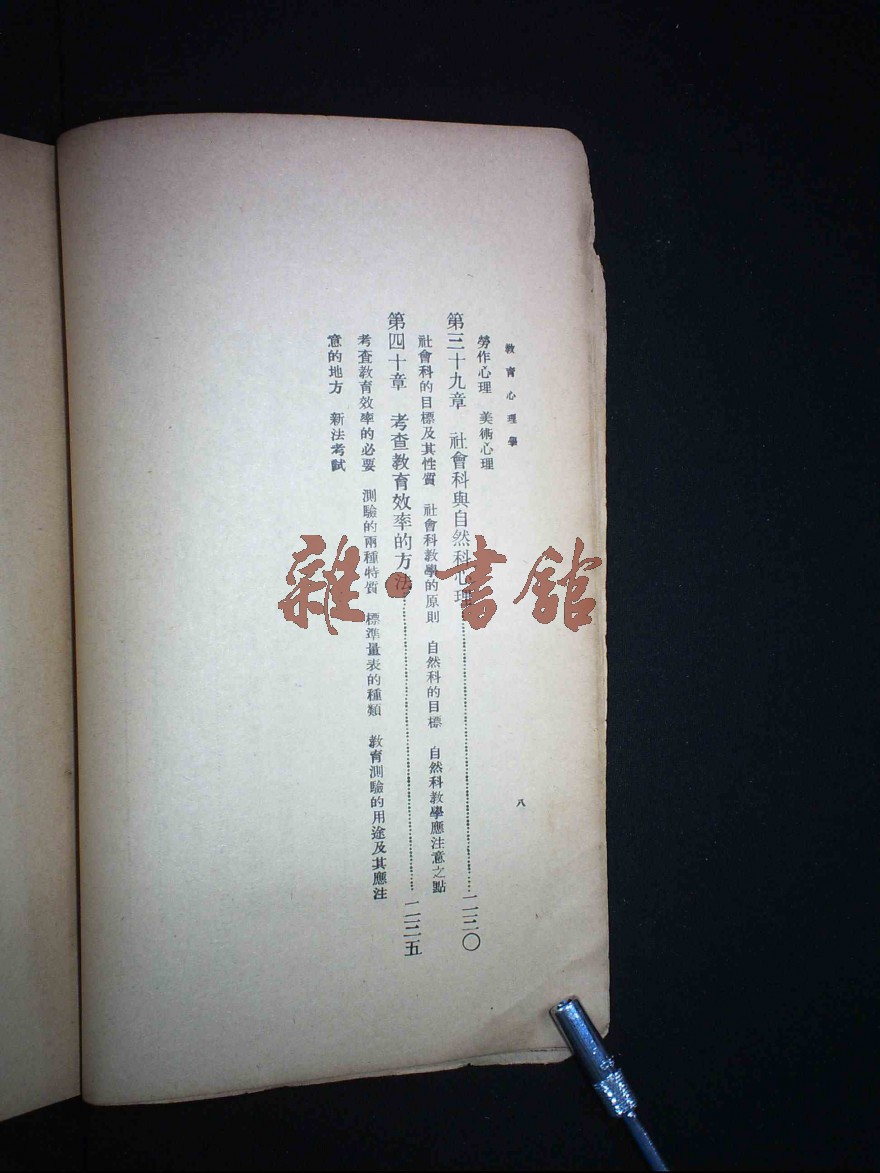 教育心理學
八
勞作心理　美術心理
第三十九章　社會科與自然科心理……二三〇
社會科的目標及其性質　社會科教學的原則　自然科的目標　自然科教學應注意之點
第四十章　考查教育效率的方法……二三五
考查教育效率的必要　測驗的兩種特質　標準量表的種類　教育測驗的用途及其應注
意的地方　新法考試
雜·書館